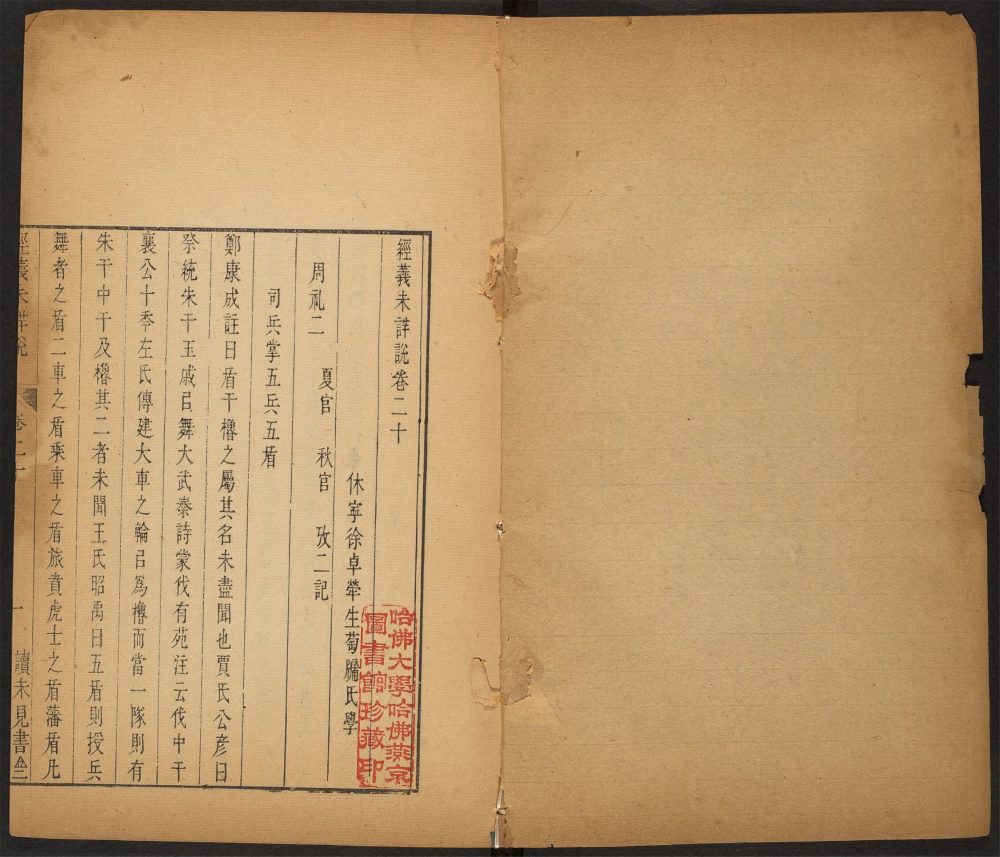 經義未詳說卷二十
休寧徐卓犖生蔔牖氏學
周礼二 夏官 秋官 攷工記
司兵掌五兵五盾
鄭康成註曰盾干櫓之屬其名未盡聞也賈氏公彦曰
祭統朱干玉戚㠯舞大武秦詩蒙伐有苑注云伐中干
襄公十年左氏傳建大車之輪㠯爲櫓而當一隊則有
朱干中干及櫓其二者未聞王氏昭禹曰五盾則授兵
舞者之盾二車之盾乘車之盾旅賁虎士之盾藩盾凡
經義未詳說 卷二十 一 讀未見書
哈佛大學哈佛燕京
圖書館珍藏印